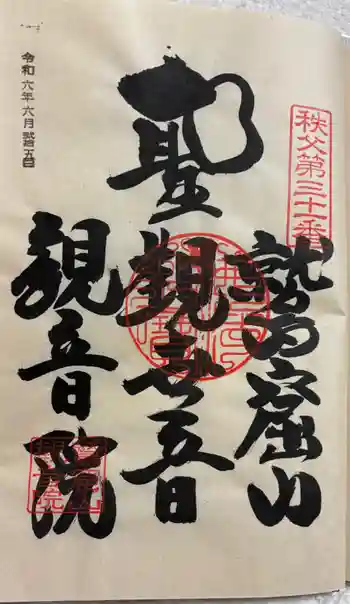 秩父第三十一番
鷲窟山
聖観世音
観音院
令和六年六月拾五日